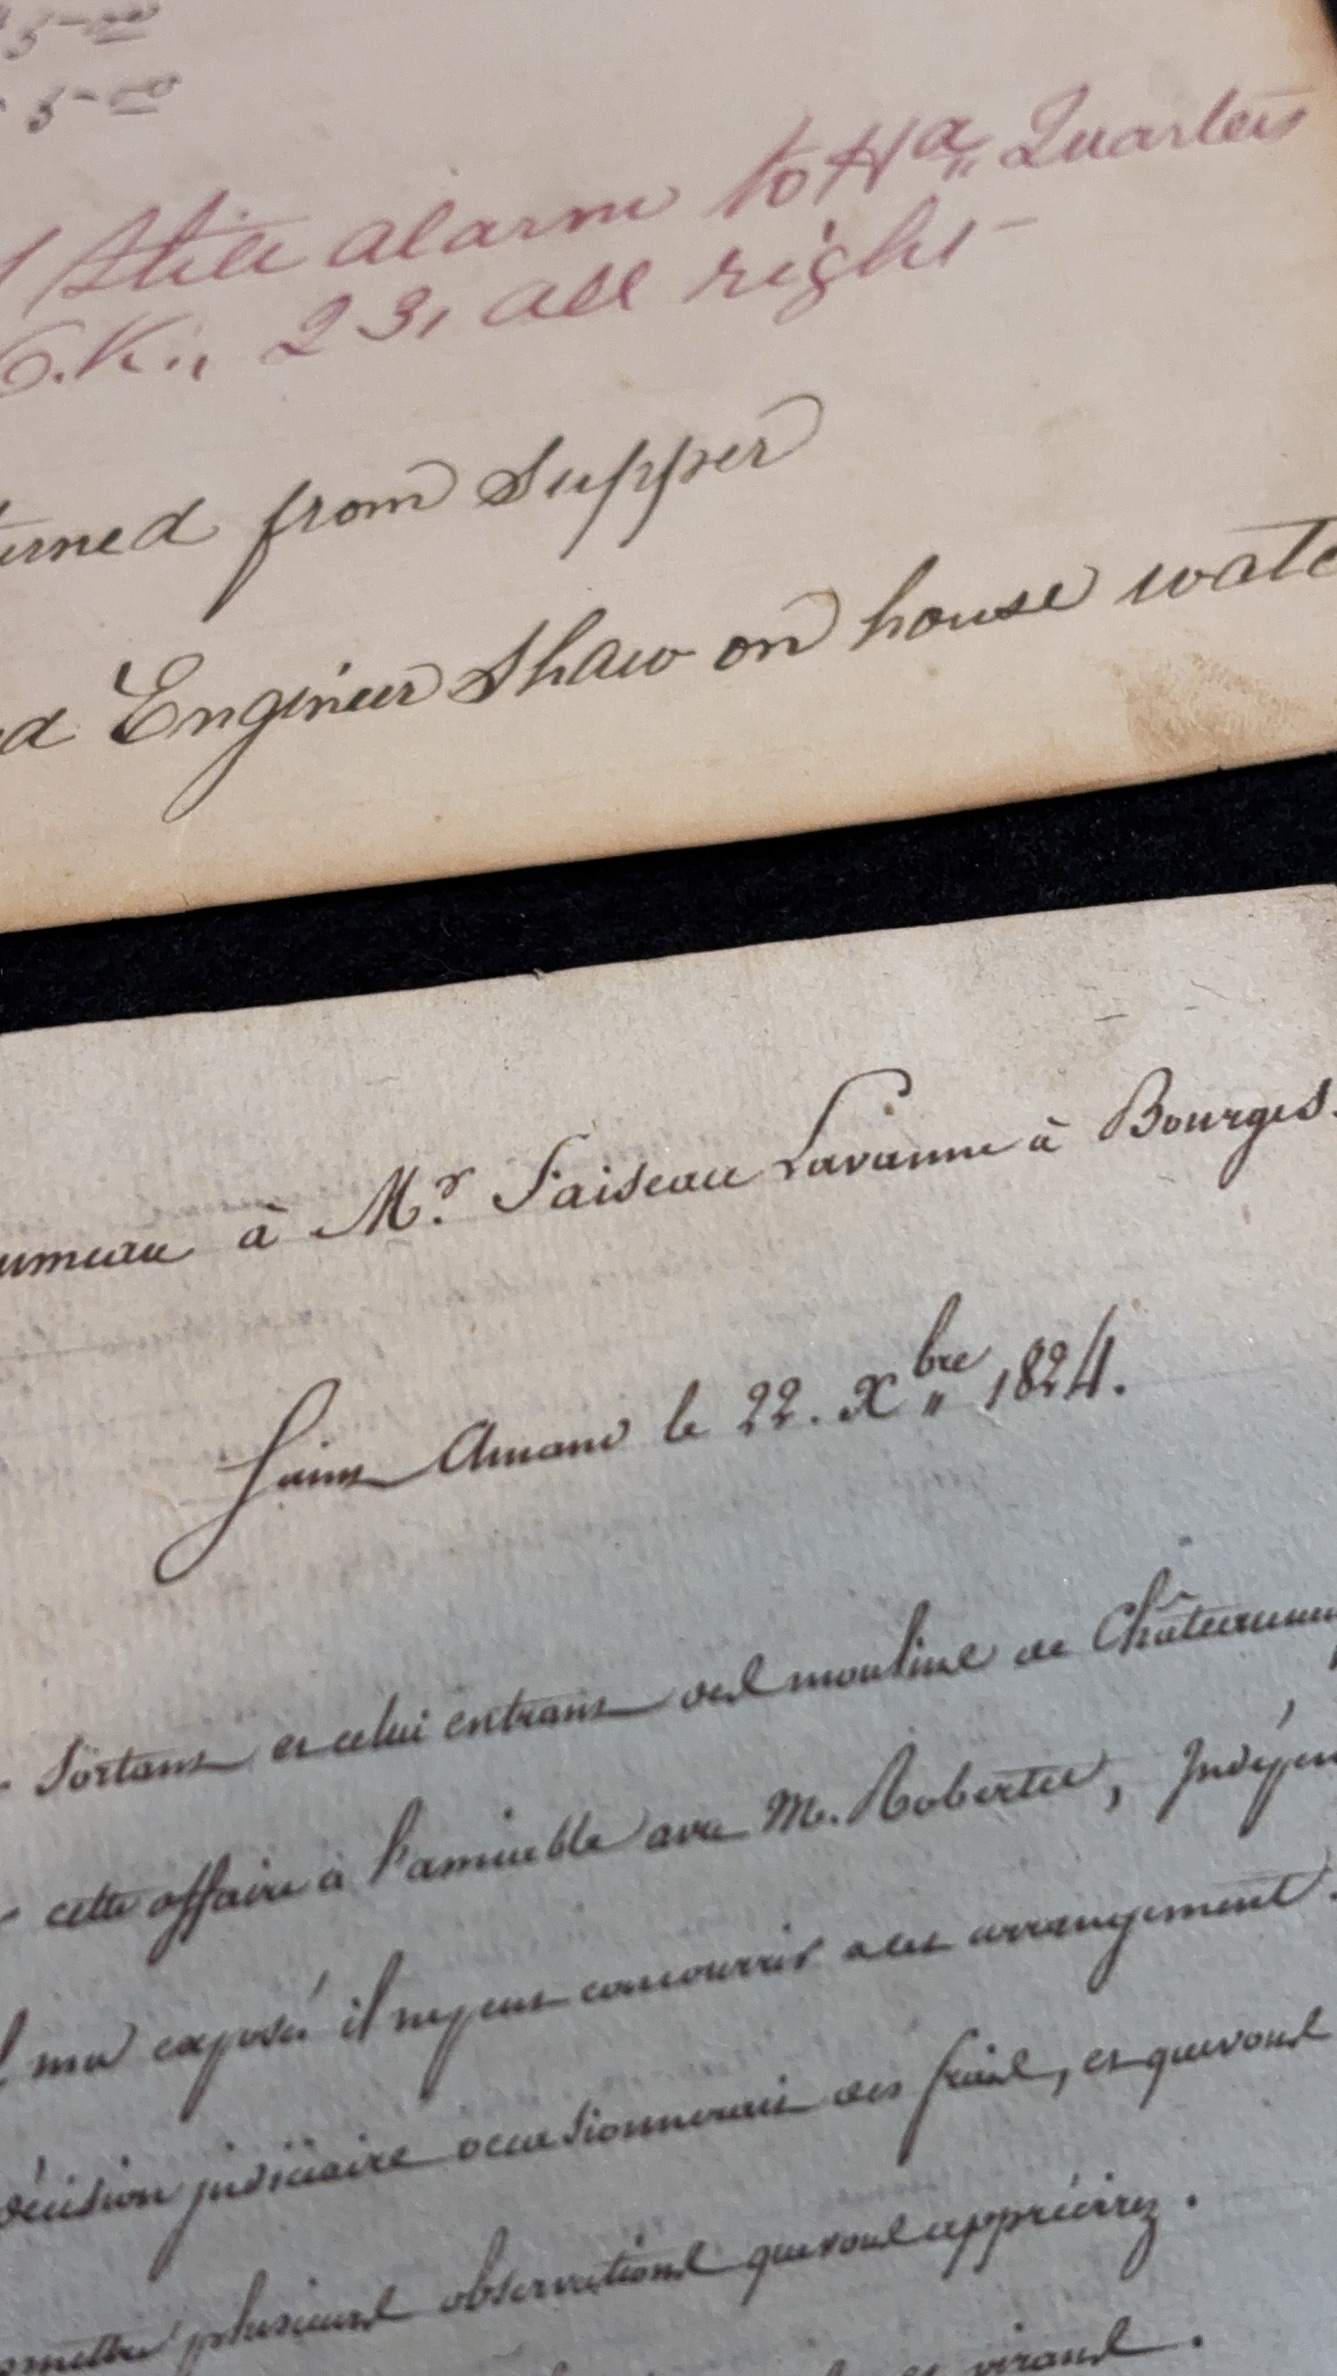 5-00
5-00
Still alarm to Hd„ Quarters
O.K., 23, all right-
urned from Supper
d Engineer Shaw on house wate
umeau à Mr. Faiseau Lavanne à Bourges.
Saint Amand le 22. Xbre„ 1824.
Sortant et celui entrant des moulins de Châteauneu
cette affaire à l'amiable avec M. Robertet, Indépen
exposé il
concourrir a cet arrangement.
décision judiciaire occasionnerait des frais, et que vous
mettre plusieurs observations que vous apprécirez.